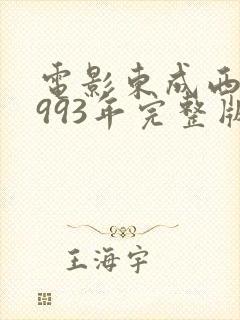 電影東成西
993年完整版
王海宇